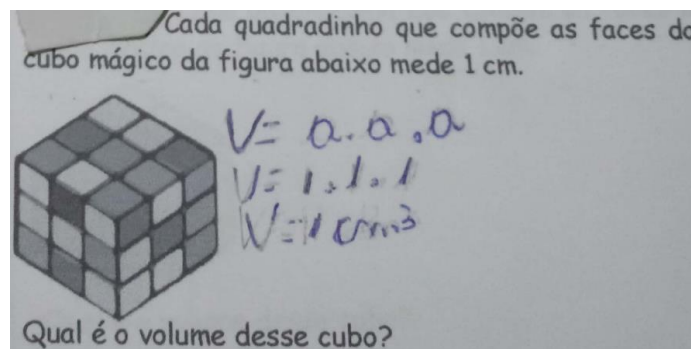 Cada quadradinho que compõe as faces do
cubo mágico da figura abaixo mede 1 cm.
V= a.a.a
V= 1.1.1
V=1 cm³
Qual é o volume desse cubo?